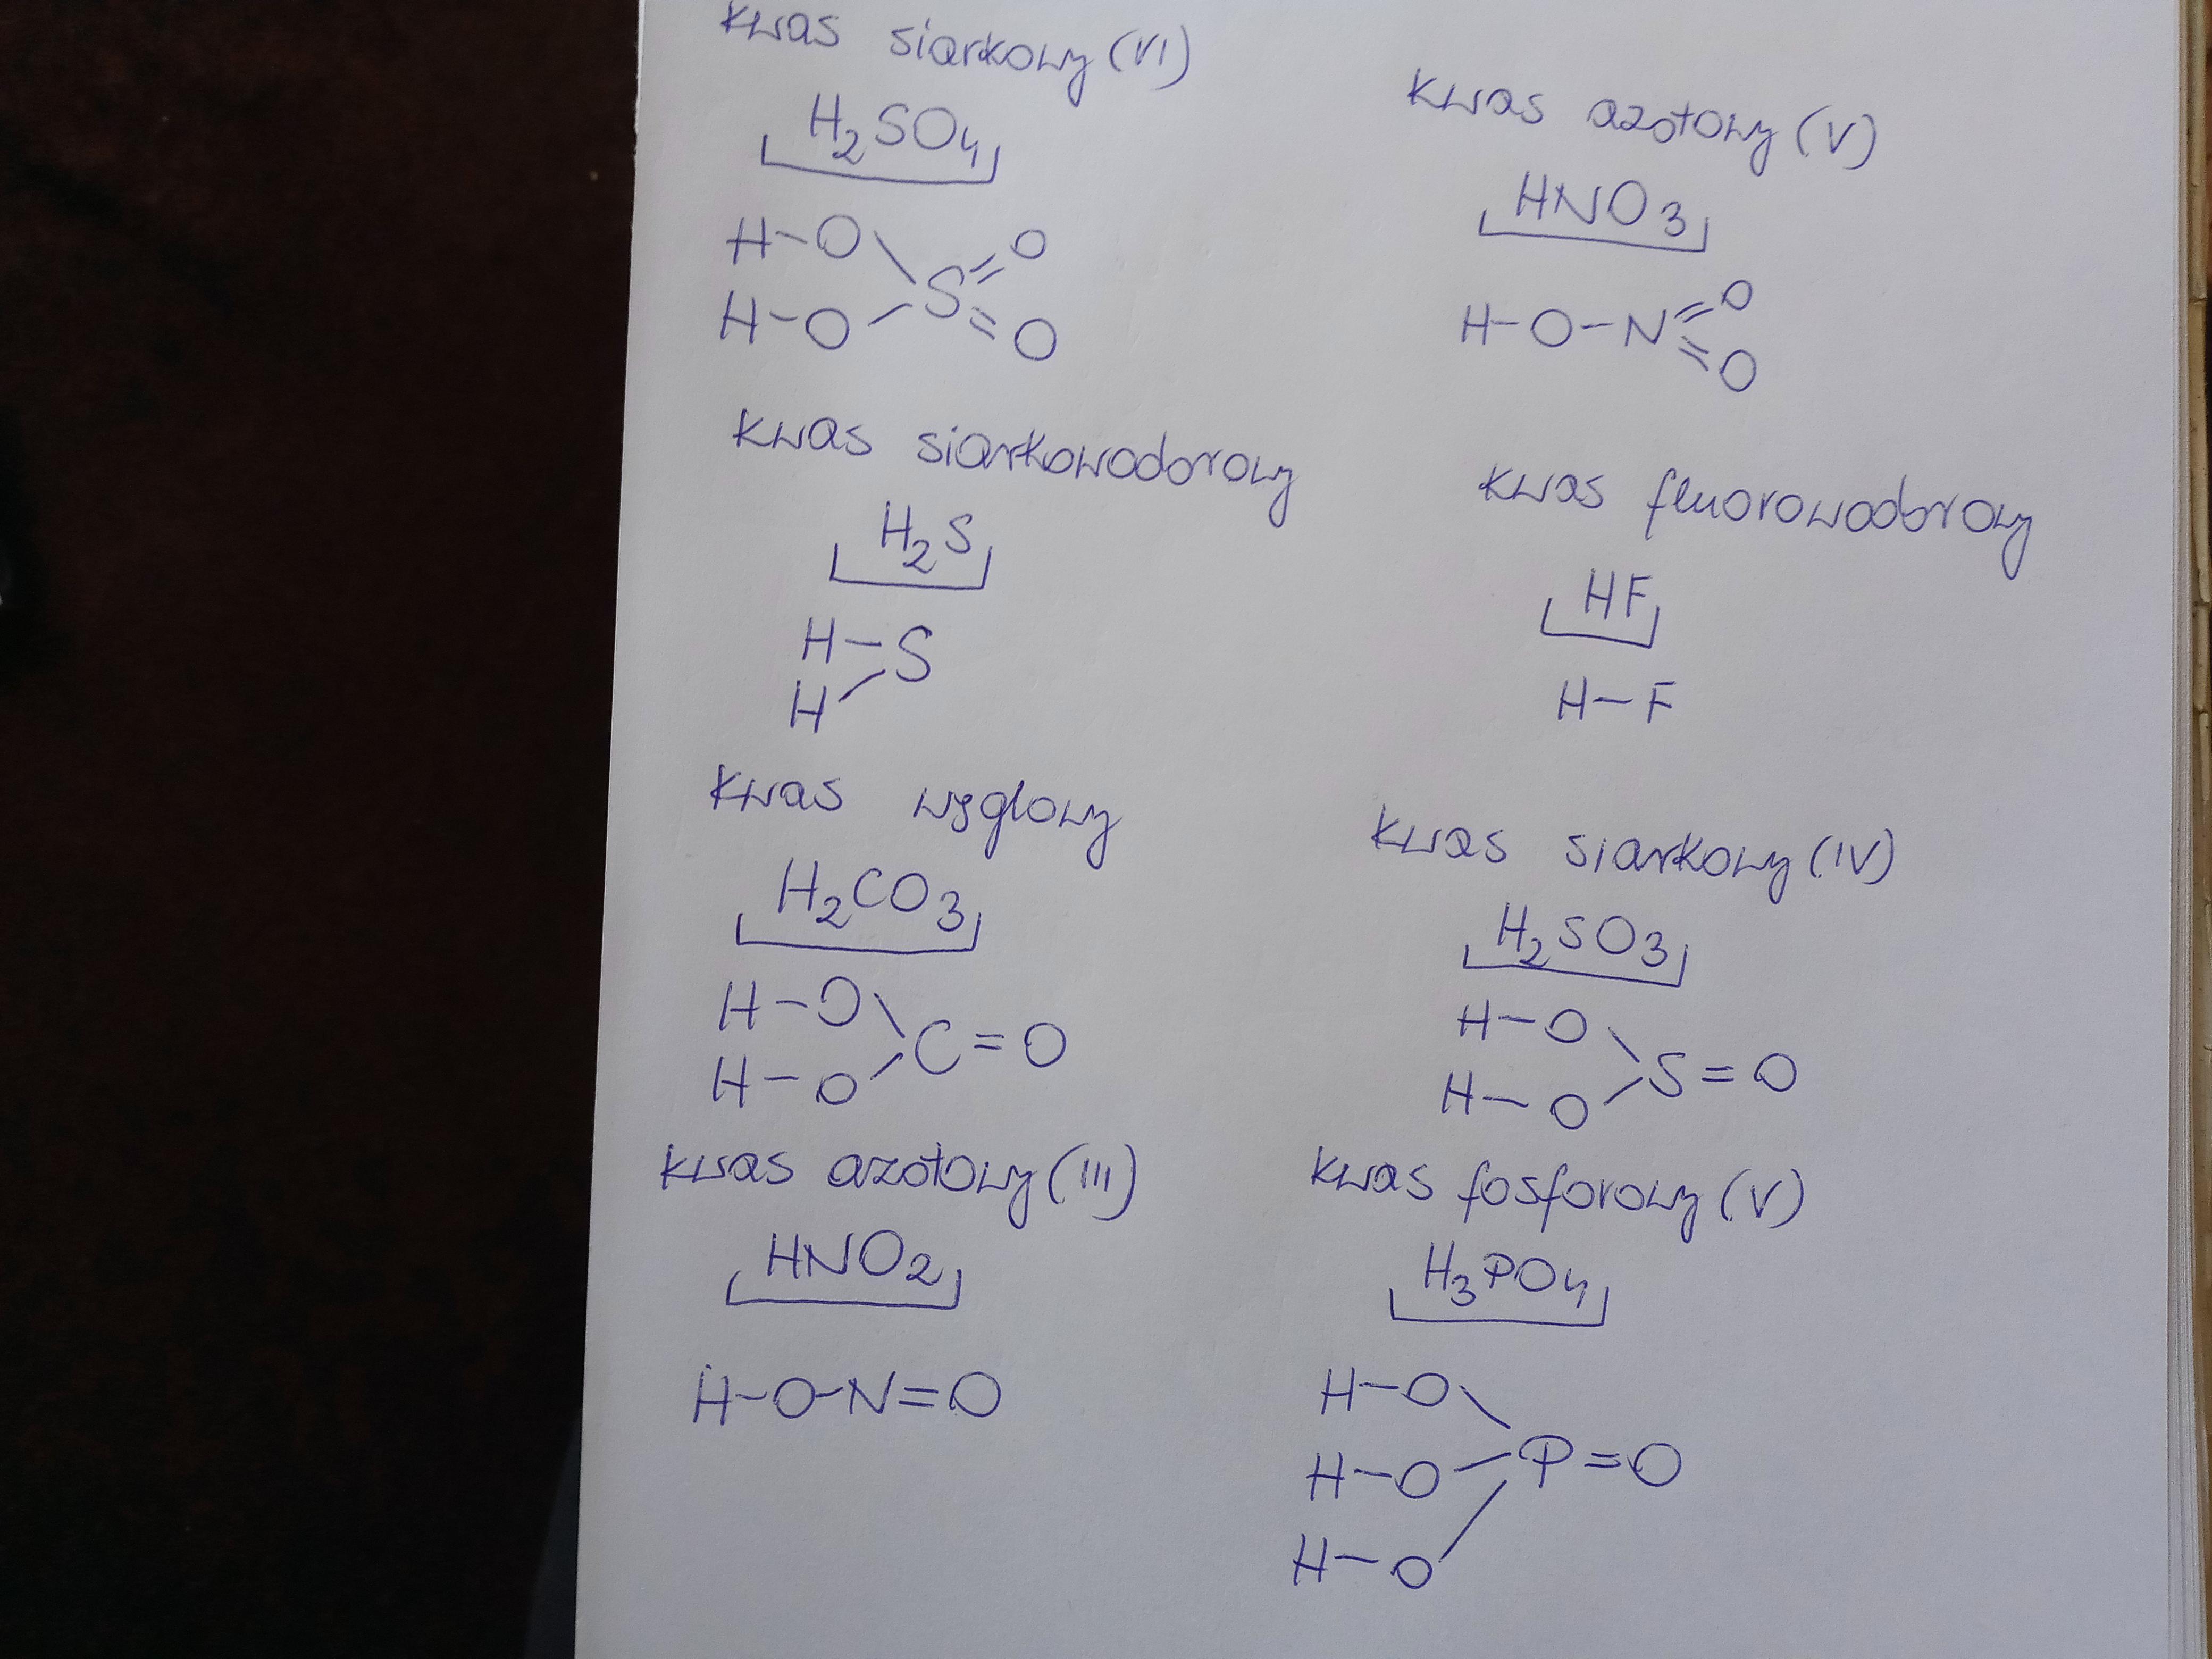 kwas siarkowy (VI)
H₂SO₄
H-O
H-O
S
=O
=O
kwas azotowy (V)
HNO₃
H-O-N
=O
=O
kwas siarkowodorowy
H₂S
H-S
H
kwas fluorowodorowy
HF
H-F
kwas węglowy
H₂CO₃
H-O
C=O
H-O
kwas siarkowy (IV)
H₂SO₃
H-O
S=O
H-O
kwas azotowy (III)
HNO₂
H-O-N=O
kwas fosforowy (V)
H₃PO₄
H-O
H-O-P=O
H-O